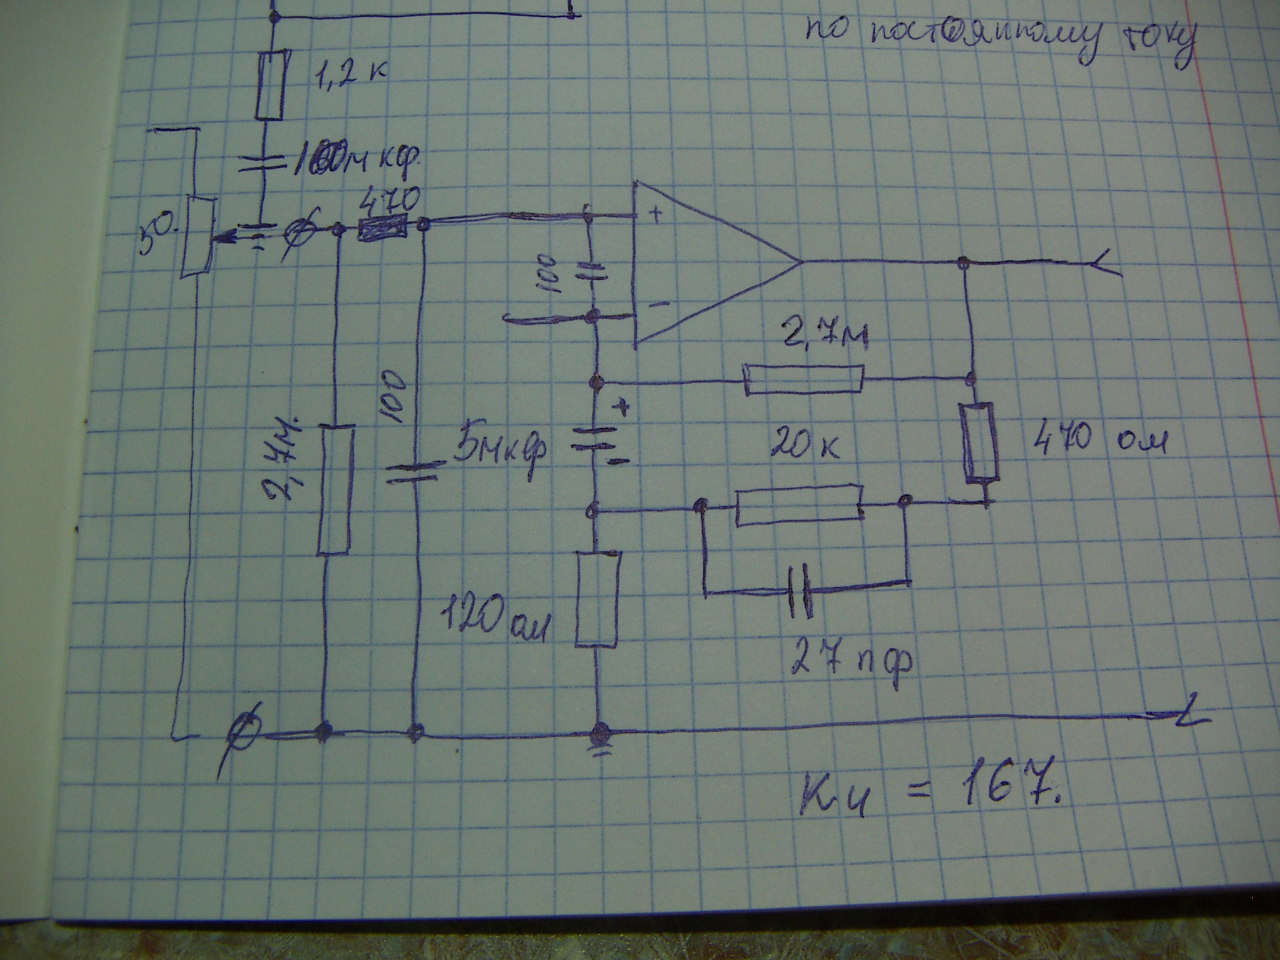 по постоянному току
1,2 к
100мкф.
470
50.
+
100
-
2,7м
+
100
5мкф
20к
470 ом
2,7м.
-
120ом
27пф
Кu = 167.